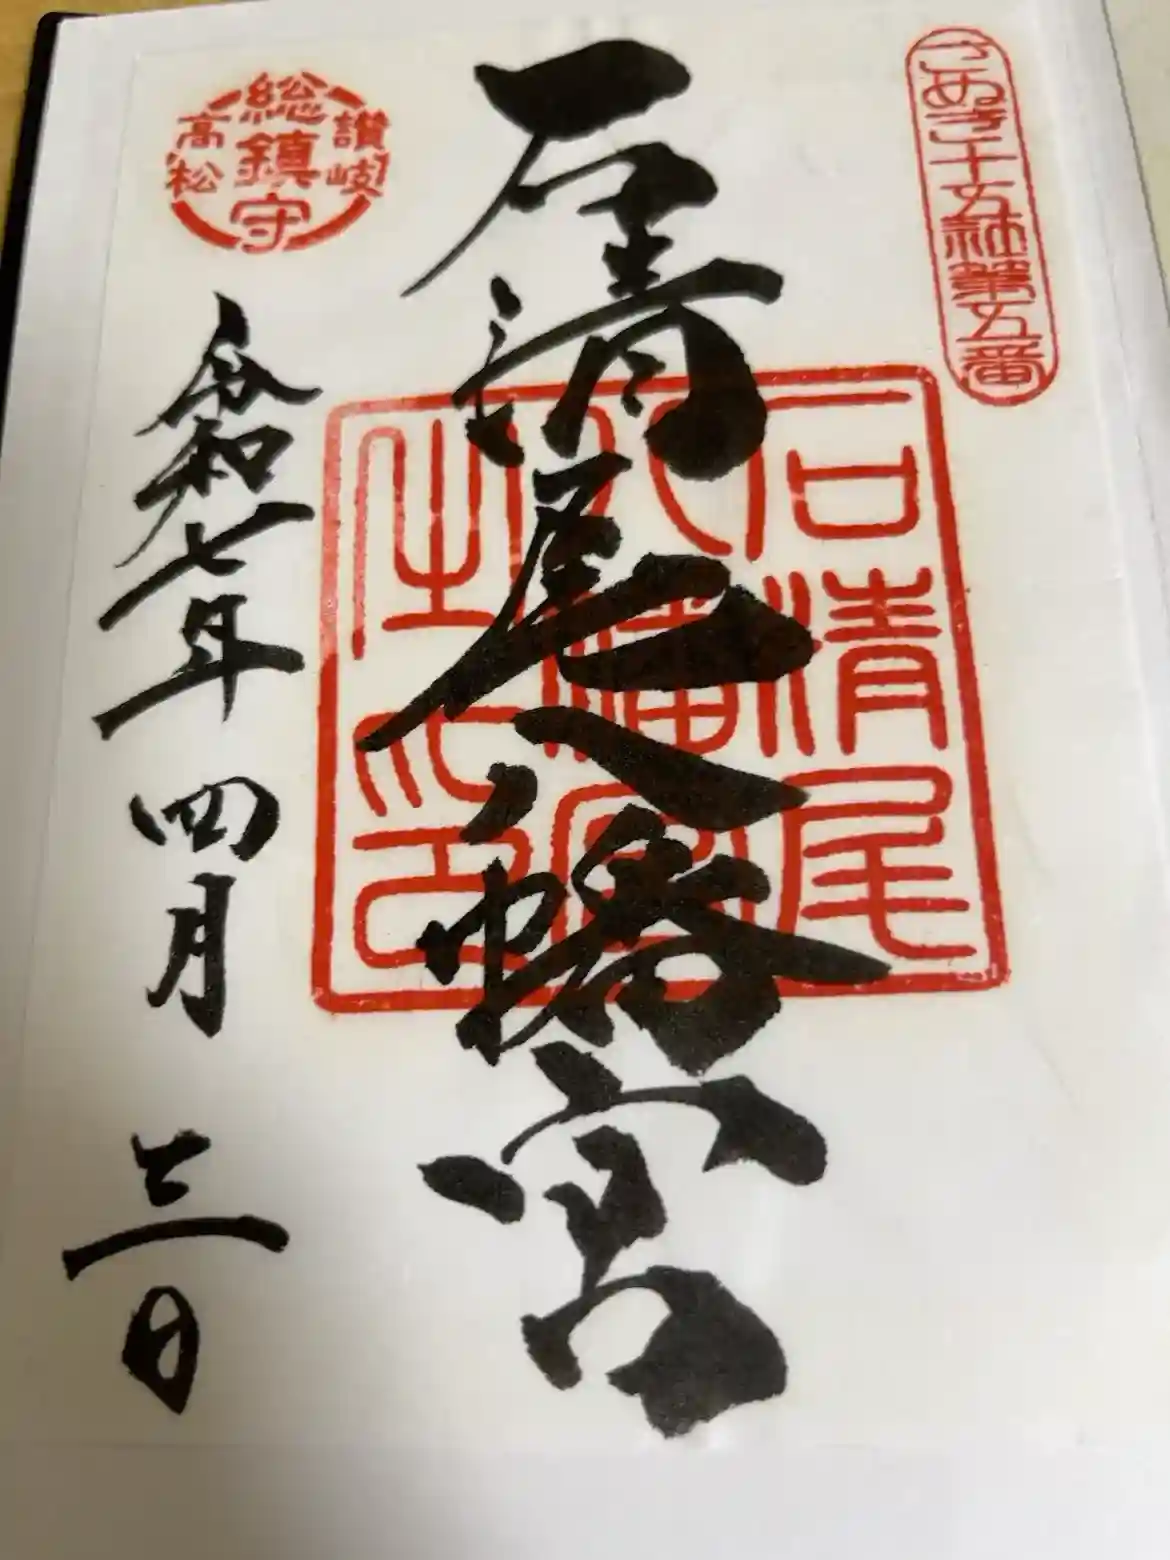 さぬき十五社第五番
石清尾八幡宮
石清尾
八幡宮
之印
讃岐
総鎮守
高松
令和七年四月三日